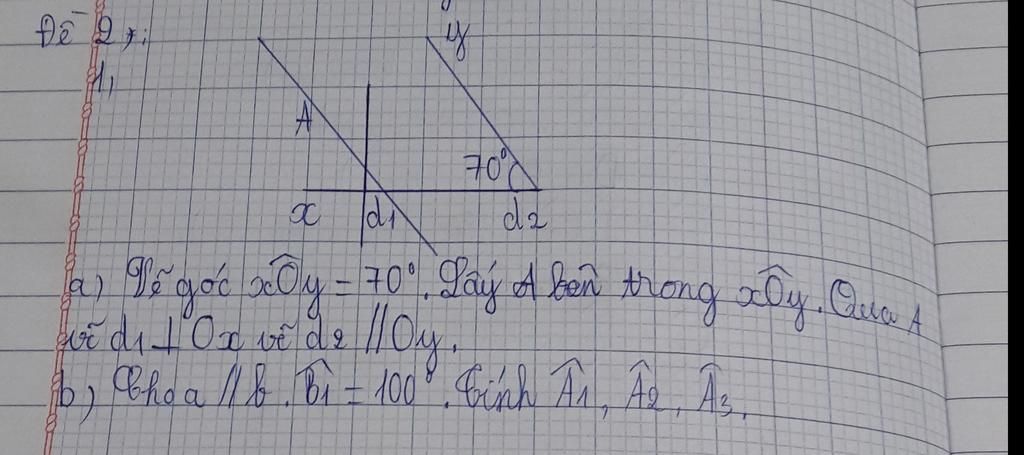 Đề 2,:
1,
y
A
70°
x d1 d2
a) Vẽ góc xÔy = 70°. Lấy A bên trong xÔy. Qua A
vẽ d1 ⊥ Ox vẽ d2 // Oy.
b) Cho a // b. B̂1 = 100°. Tính Â1, Â2, Â3.